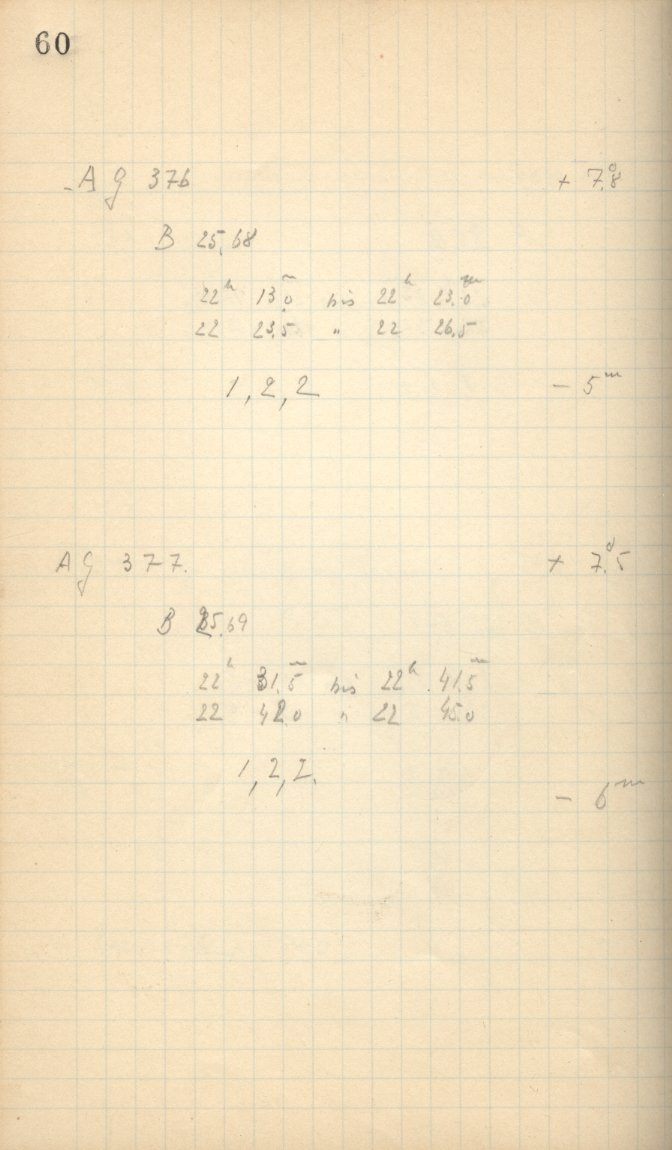 60
AG 376 + 7°.8
B 25,68
22h 13,0m bis 22h 23,0m
22 23,5 " 22 26,5
1, 2, 2 - 5m
AG 377. + 7°.5
B 25,69
22h 31,5m bis 22h 41,5m
22 42,0 " 22 45,0
1, 2, 2.
- 6m